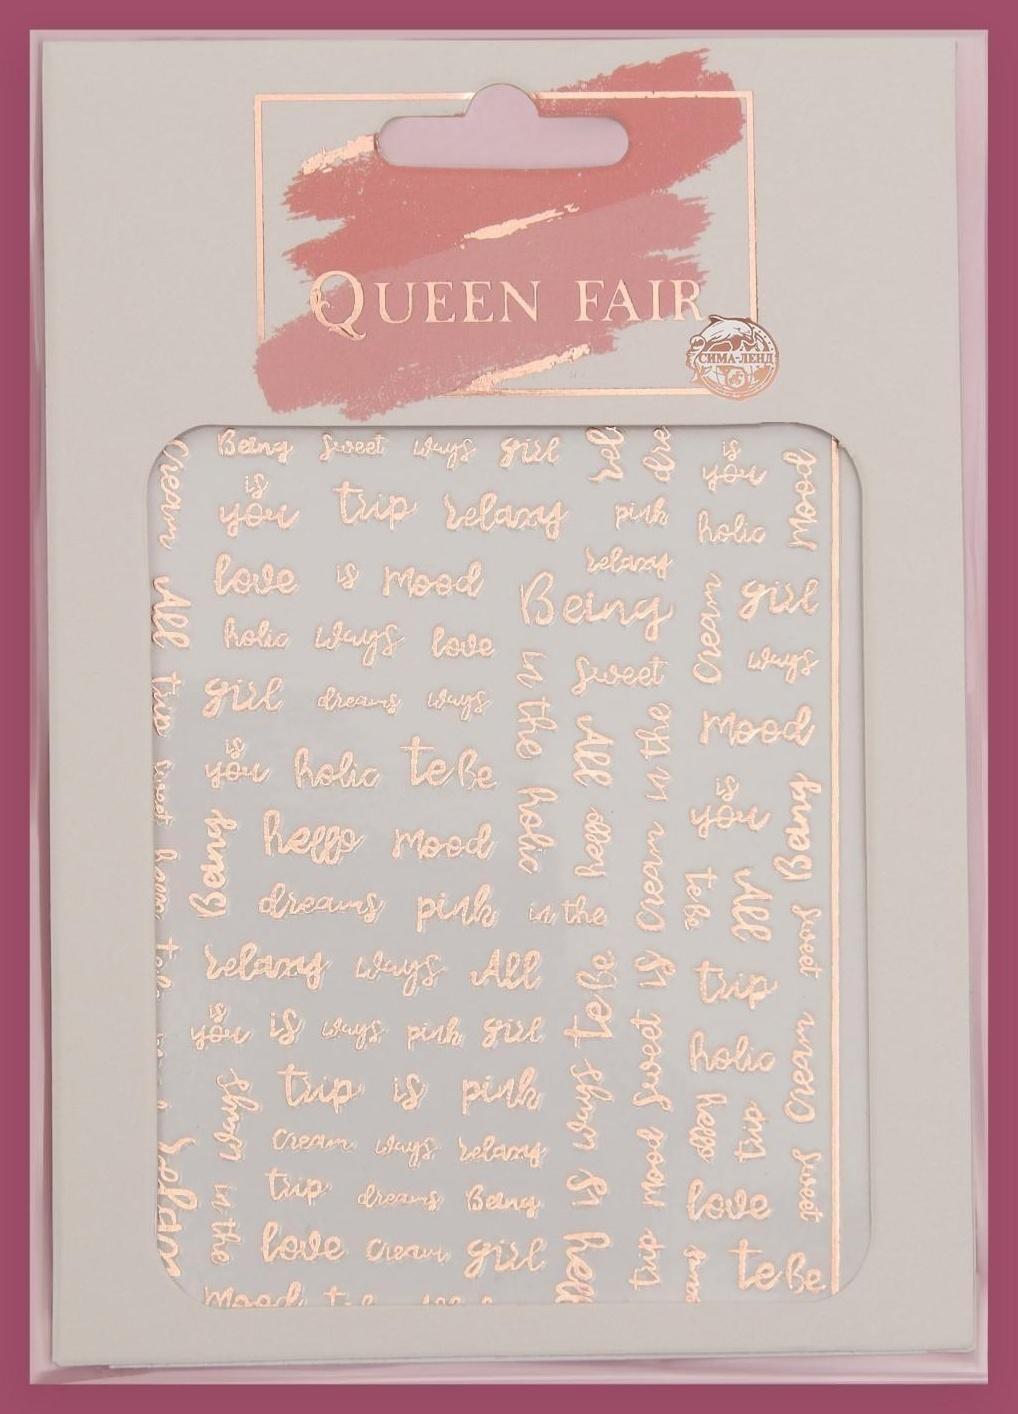 QUEEN FAIR
СИМА-ЛЕНД
Being sweet ways girl
is
you trip relaxy pink
is
you
holic
mood
relaxy
love is mood
Being
cream
girl
holic ways love
ways
in the
sweet
girl dreams ways
All
in the
mood
is
you holic to Be
holic
is
you
Being
hello mood
Being
cream
to Be
All
dreams pink in the
sweet
relaxy ways All
to Be
is
trip
is
you is ways pink girl
sweet
holic
cream
trip is pink
ways
hello
trip
cream ways relaxy
mood
sweet
trip dreams Being
is
love
in the
love cream girl
trip
to Be
mood
cream
All
trip